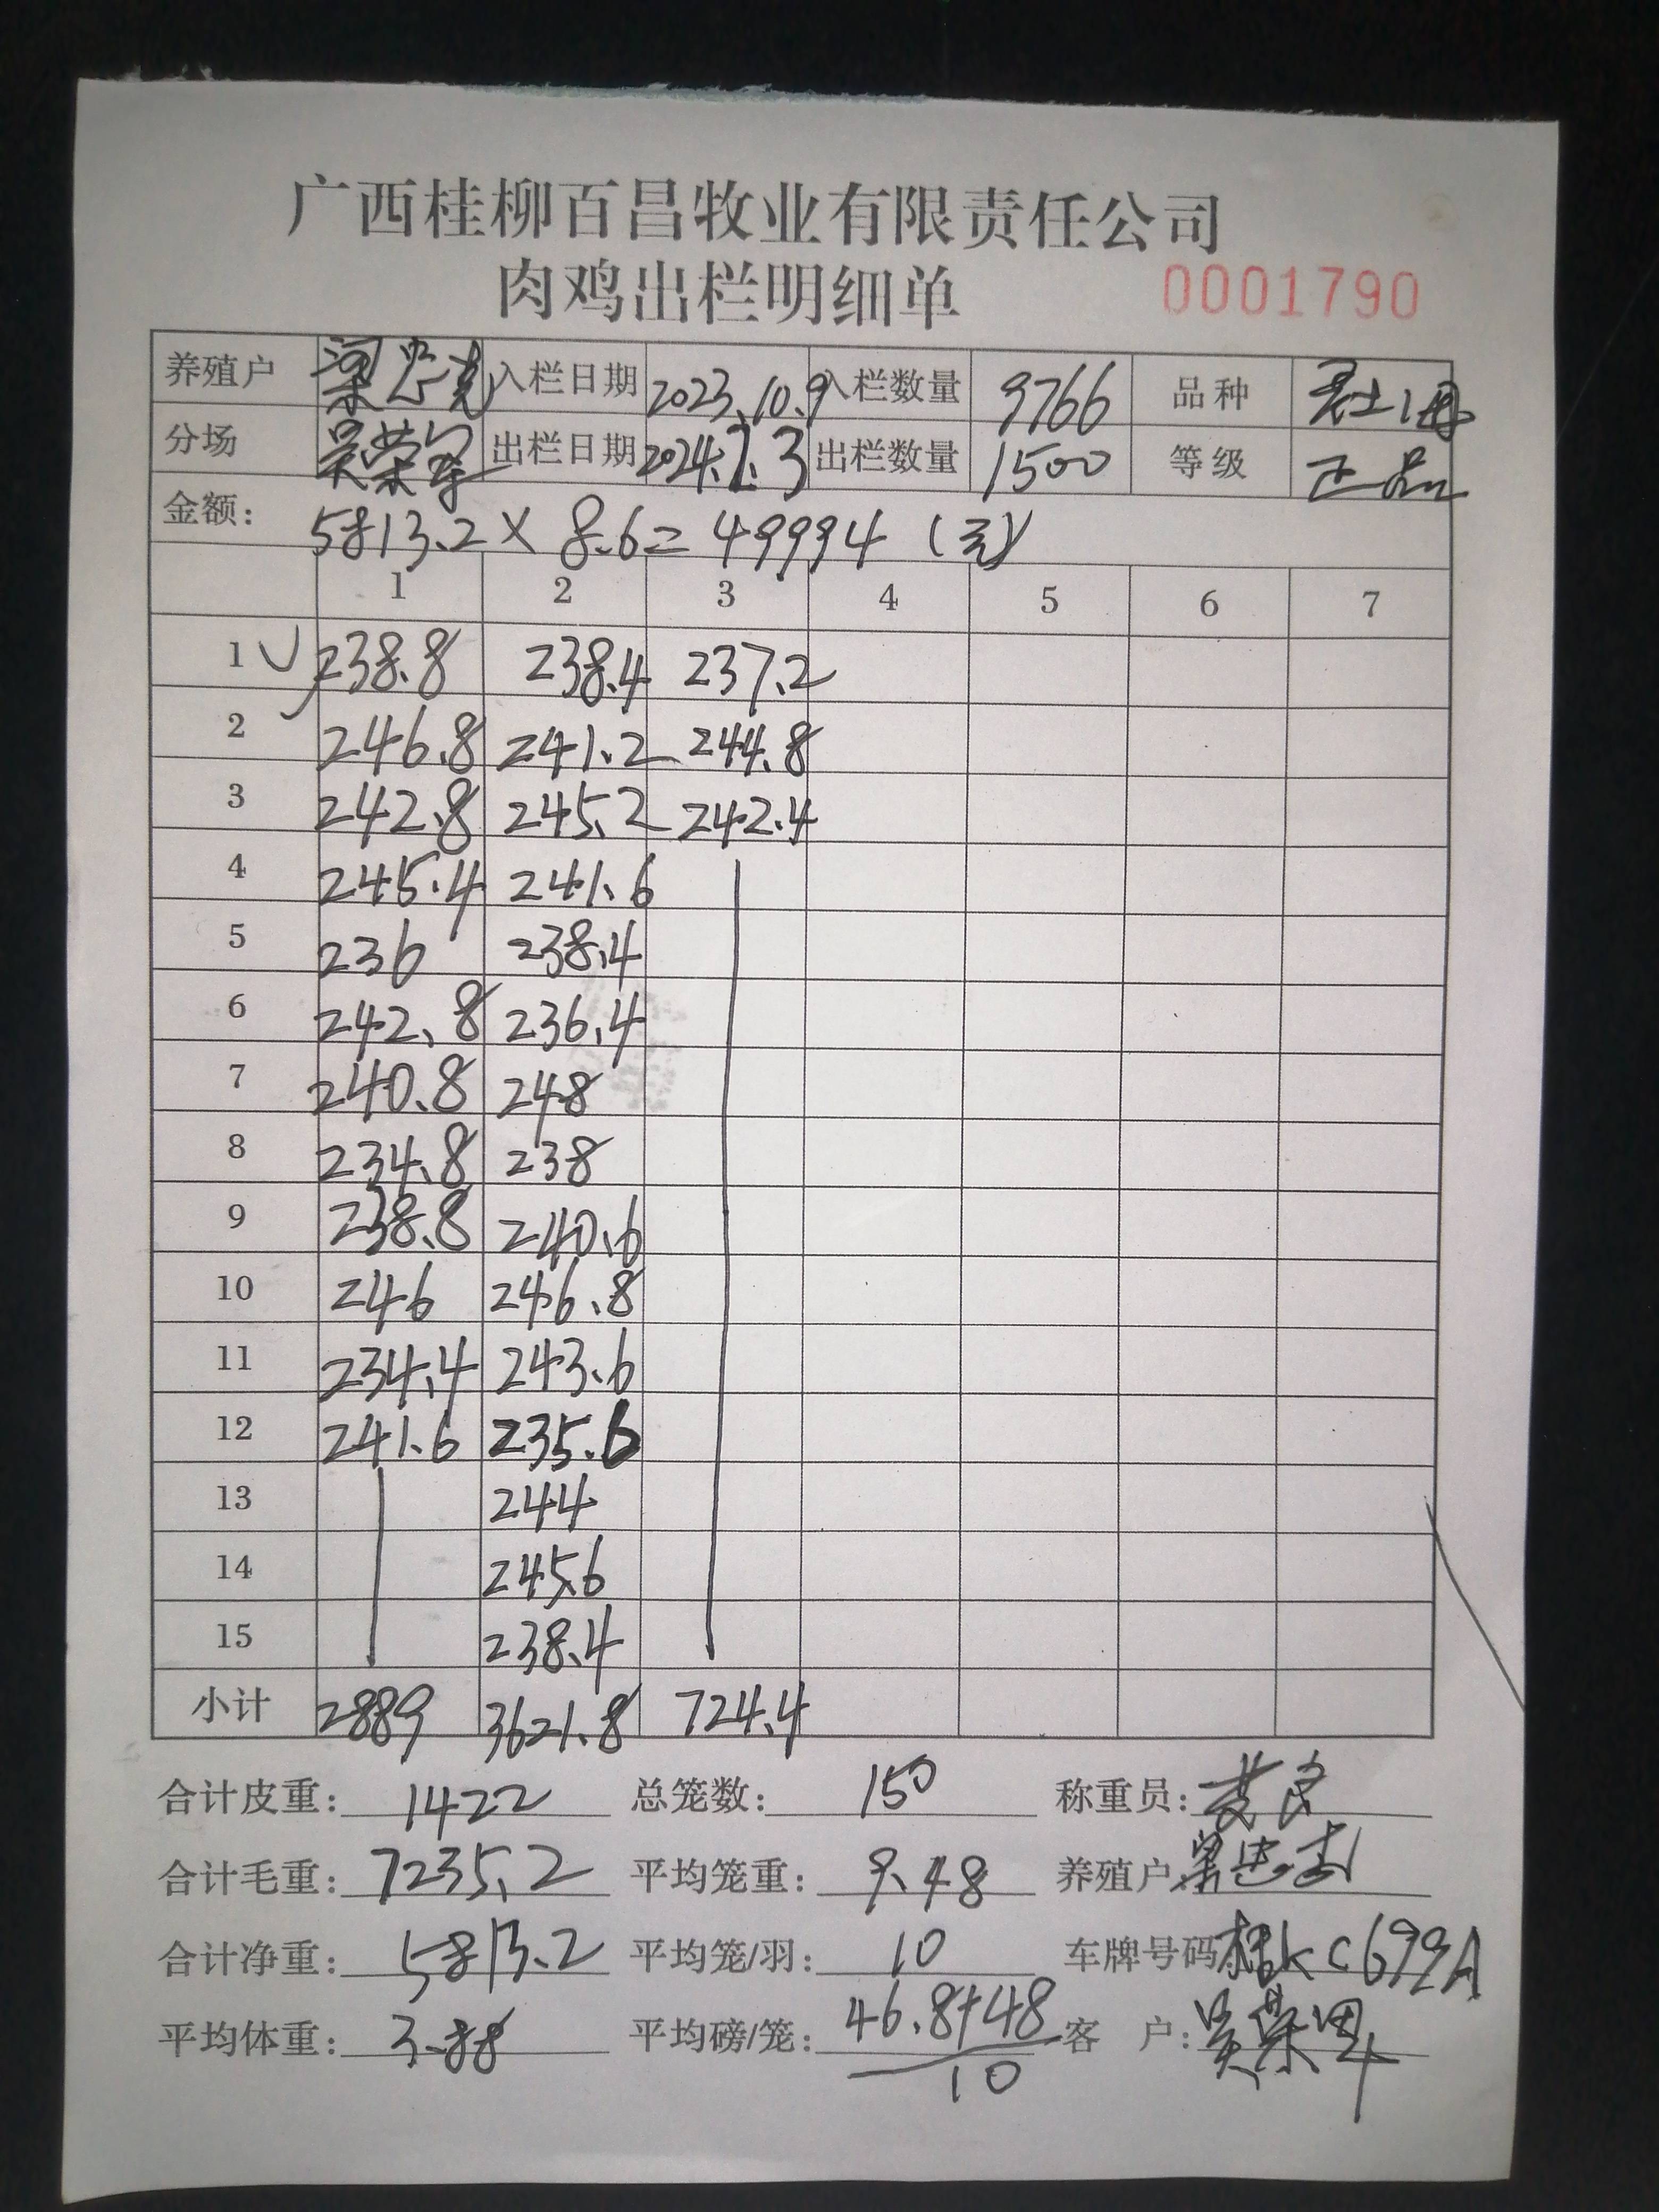 广西桂柳百昌牧业有限责任公司
肉鸡出栏明细单 0001790
养殖户 梁忠 入栏日期 2023.10.9 入栏数量 9766 品种
分场 吴荣 出栏日期 2024.2.3 出栏数量 1500 等级 正品
金额: 5813.2 × 8.6 = 49994 (元)
1 2 3 4 5 6 7
1 238.8 238.4 237.2
2 246.8 241.2 244.8
3 242.8 245.2 242.4
4 245.4 241.6
5 236 238.4
6 242.8 236.4
7 240.8 248
8 234.8 238
9 238.8 240.6
10 246 246.8
11 234.4 243.6
12 241.6 235.6
13 244
14 245.6
15 238.4
小计 2889 3621.8 724.4
合计皮重: 1422 总笼数: 150 称重员:
合计毛重: 7235.2 平均笼重: 9.48 养殖户: 梁忠
合计净重: 5813.2 平均笼/羽: 10 车牌号码 桂KC699A
平均体重: 3.88 平均磅/笼: 46.8+48 客 户: 吴荣
10